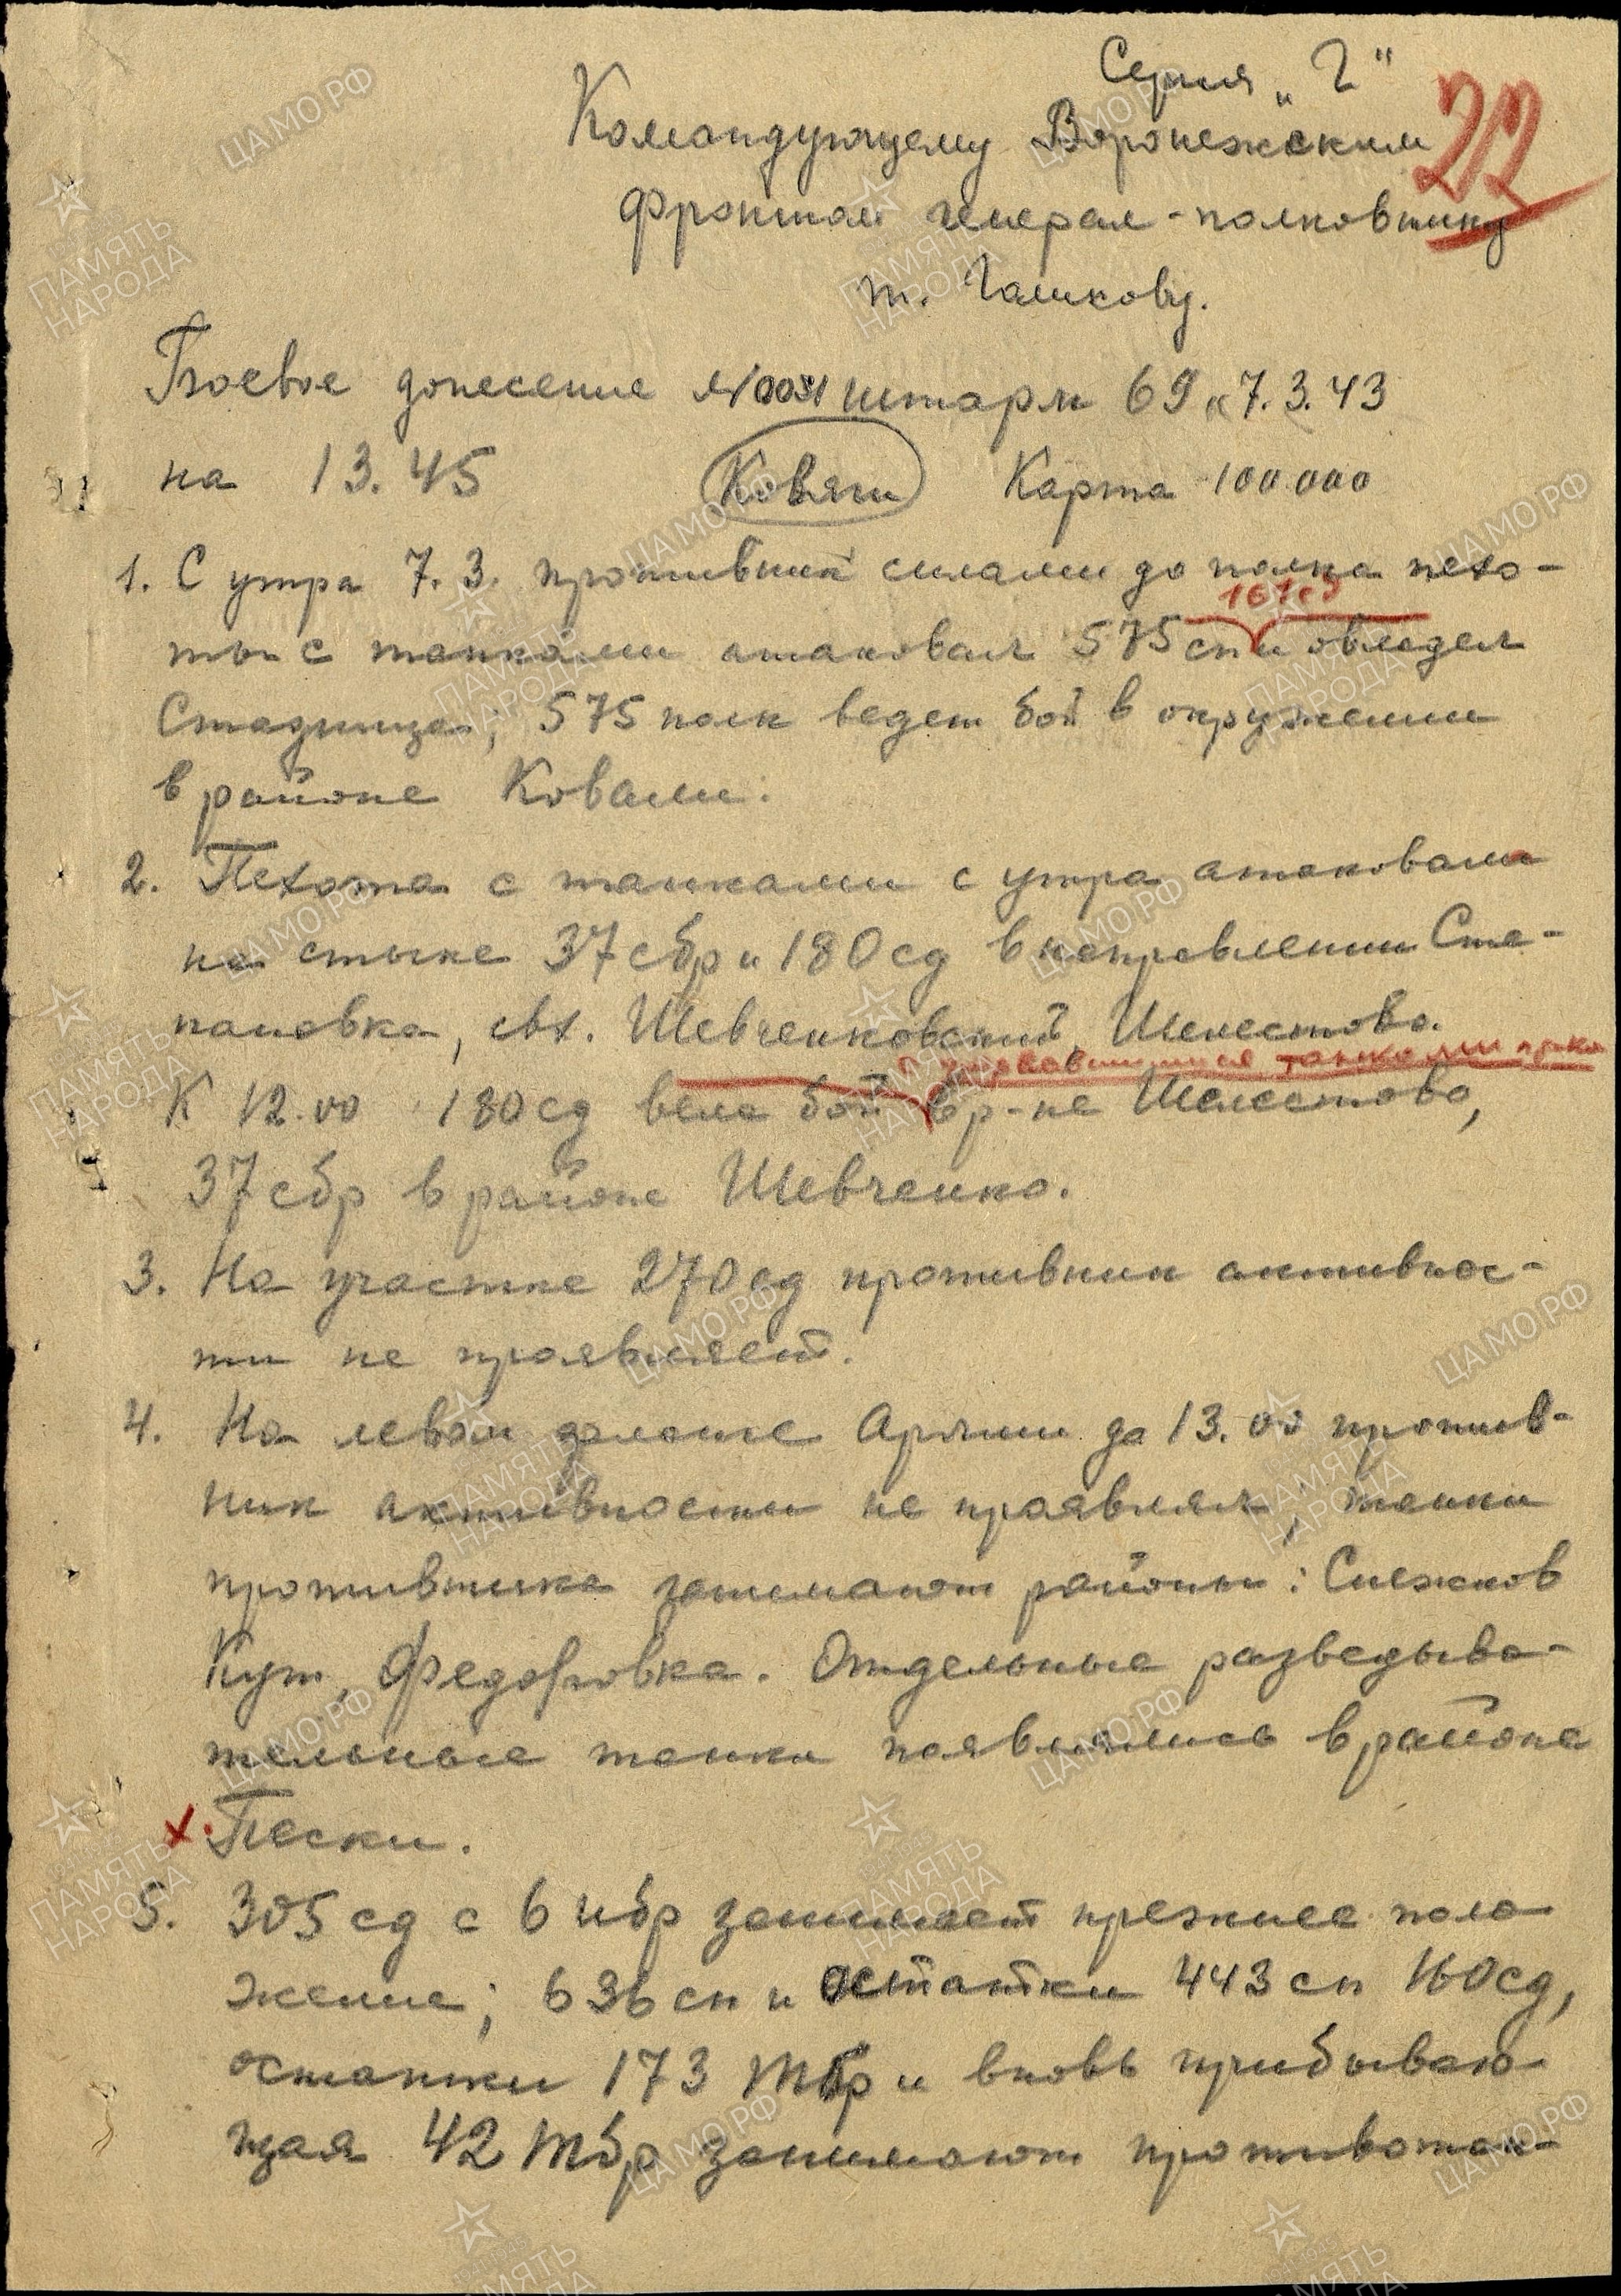 Серия „Г"
22
Командующему Воронежским
фронтом генерал-полковнику
т. Голикову.
Боевое донесение №0031 штарм 69 к 7.3.43
на 13.45 Ковяги Карта 100.000
1. С утра 7.3. противник силами до полка пехо-
161 сд
ты с танками атаковал 575 сп и овладел
Станица; 575 полк ведет бой в окружении
в районе Ковали.
2. Пехота с танками с утра атаковали
на стыке 37 сбр и 180 сд в направлении Сте-
пановка, свх. Шевченковский, Шелестово.
с прорвавшимися танками пр-ка
К 12.00 180 сд вела бой в р-не Шелестово,
37 сбр в районе Шевченко.
3. На участке 270 сд противник активнос-
ти не проявляет.
4. На левом фланге Армии до 13.00 против-
ник активности не проявлял, танки
противника занимают районы: Снежков
Кут, Федоровка. Отдельные разведыва-
тельные танки появлялись в районе
х. Пески.
5. 305 сд с 6 ибр занимает прежнее поло
жение; 636 сп и остатки 443 сп 160 сд,
остатки 173 тбр и вновь прибываю-
щая 42 тбр занимают противотан-